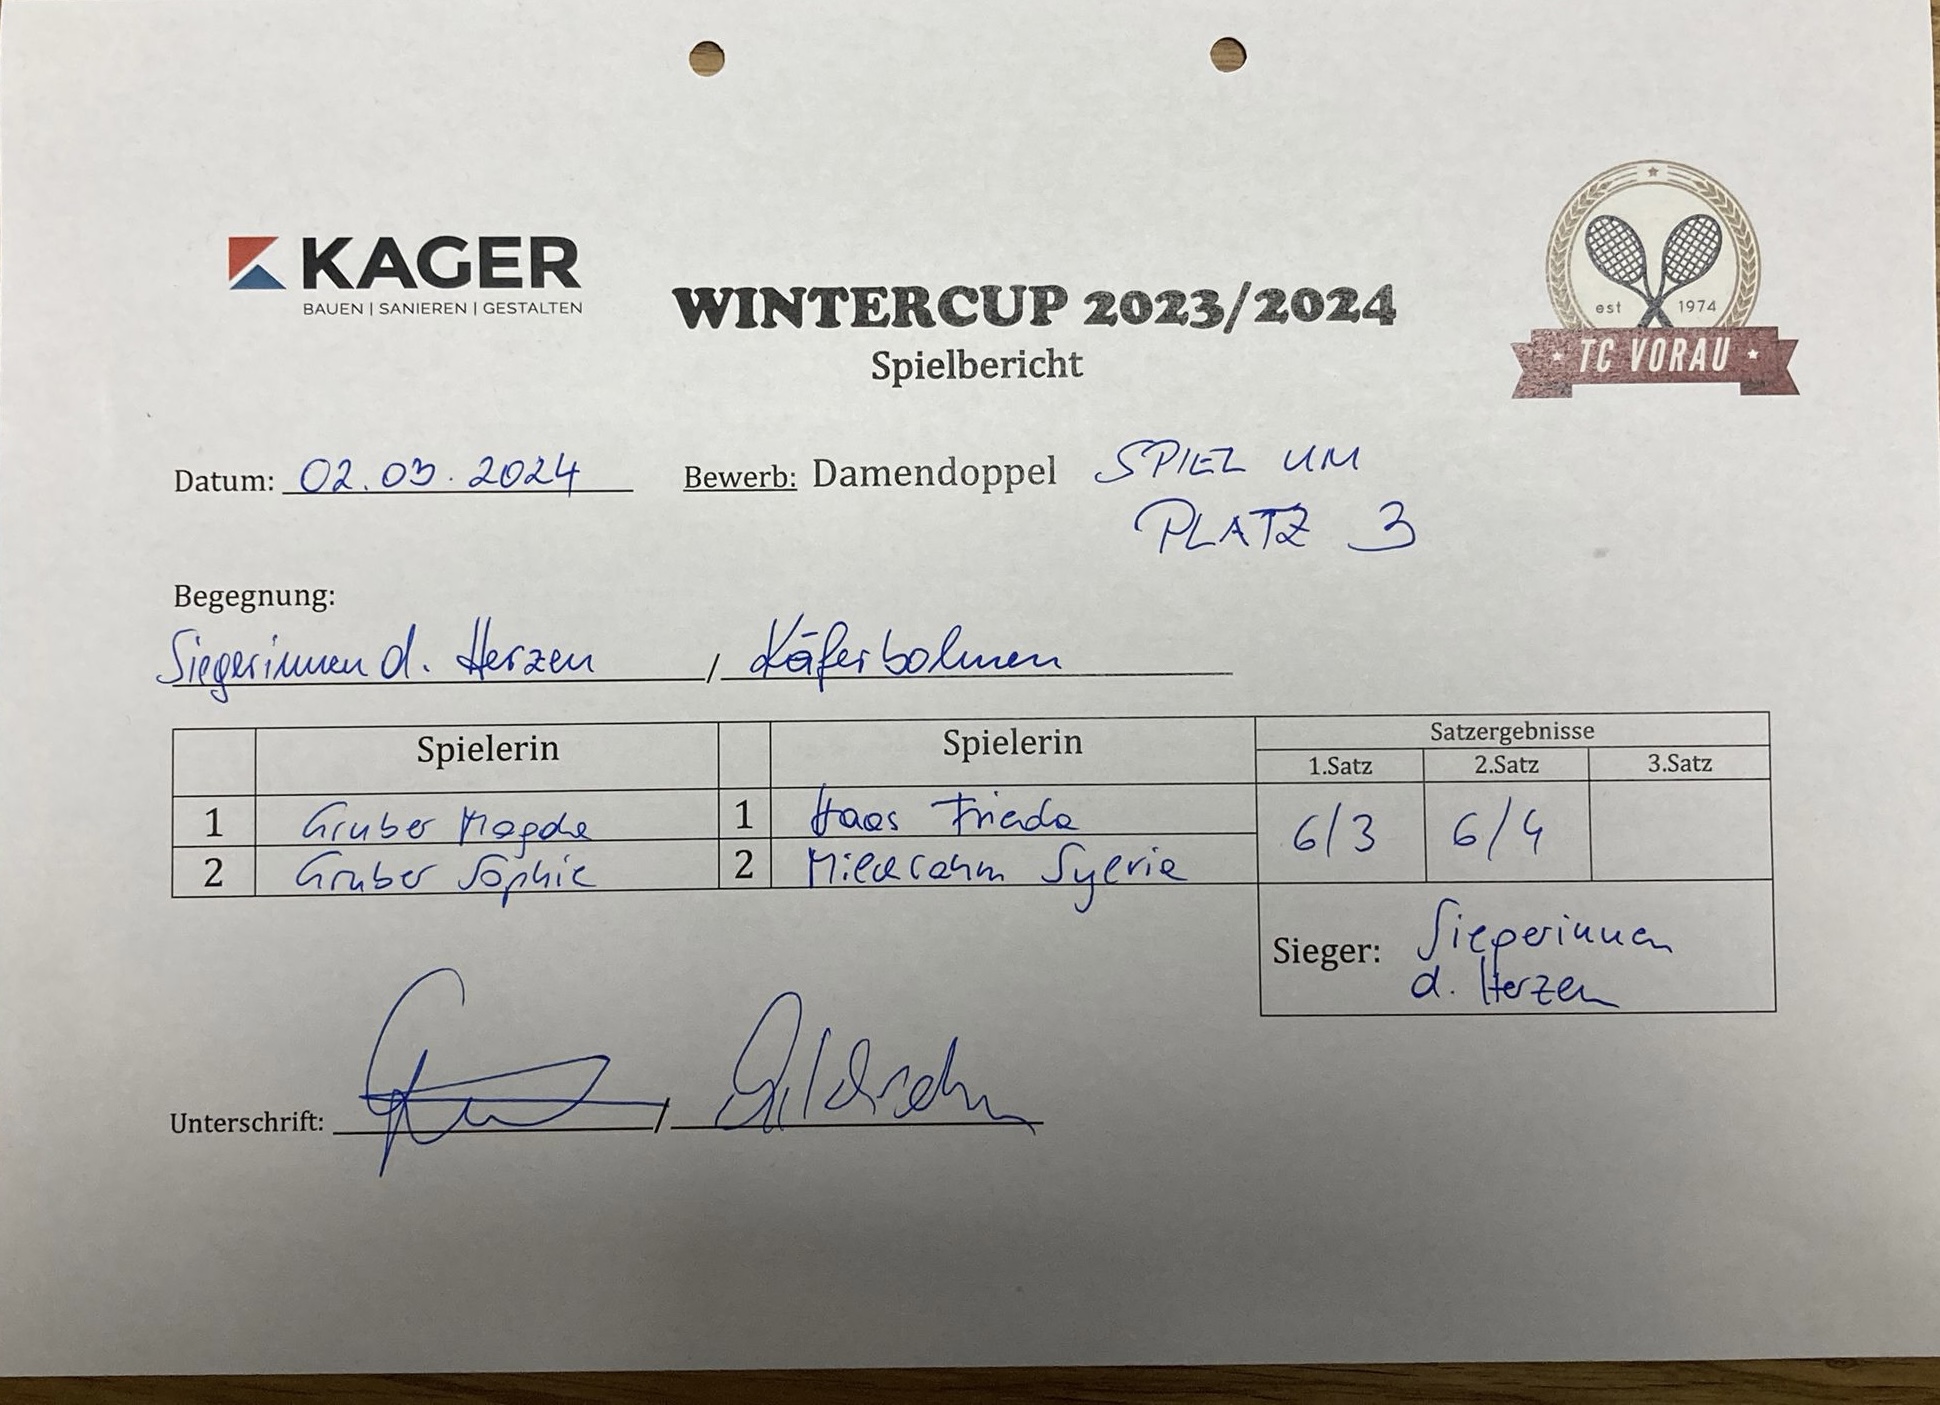 KAGER
BAUEN | SANIEREN | GESTALTEN
WINTERCUP 2023/2024
Spielbericht
est 1974
TC VORAU
Datum: 02.03.2024 Bewerb: Damendoppel SPIEL UM
PLATZ 3
Begegnung:
Siegerinnen d. Herzen / Käferbohnen
Spielerin Spielerin Satzergebnisse
1.Satz 2.Satz 3.Satz
1 Gruber Magda 1 Haas Frieda 6/3 6/4
2 Gruber Sophie 2 Mildrahm Sylvia
Sieger: Siegerinnen
d. Herzen
Unterschrift: /